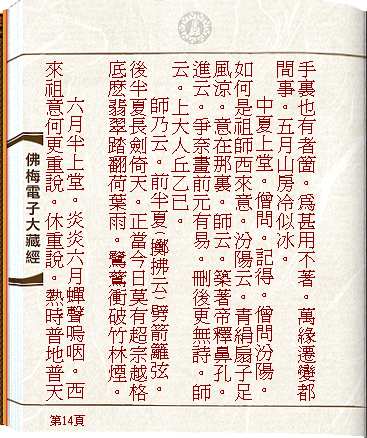 手裏也有者箇。爲甚用不著。萬緣遷變都
間事。五月山房冷似冰。
中夏上堂。僧問。記得。僧問汾陽。
如何是祖師西來意。汾陽云。青絹扇子足
風涼。意在那裏。師云。築著帝釋鼻孔。
進云。爭奈畫前元有易。刪後更無詩。師
云。上大人丘乙已。
師乃云。前半夏(擲拂云)劈箭離弦。
後半夏長劍倚天。正當今日莫有超宗越格
底麽翡翠踏翻荷葉雨。鷺鷥衝破竹林煙。
六月半上堂。炎炎六月蟬聲嗚咽。西
來祖意何更重說。休重說。熱時普地普天
佛梅電子大藏經
第14頁